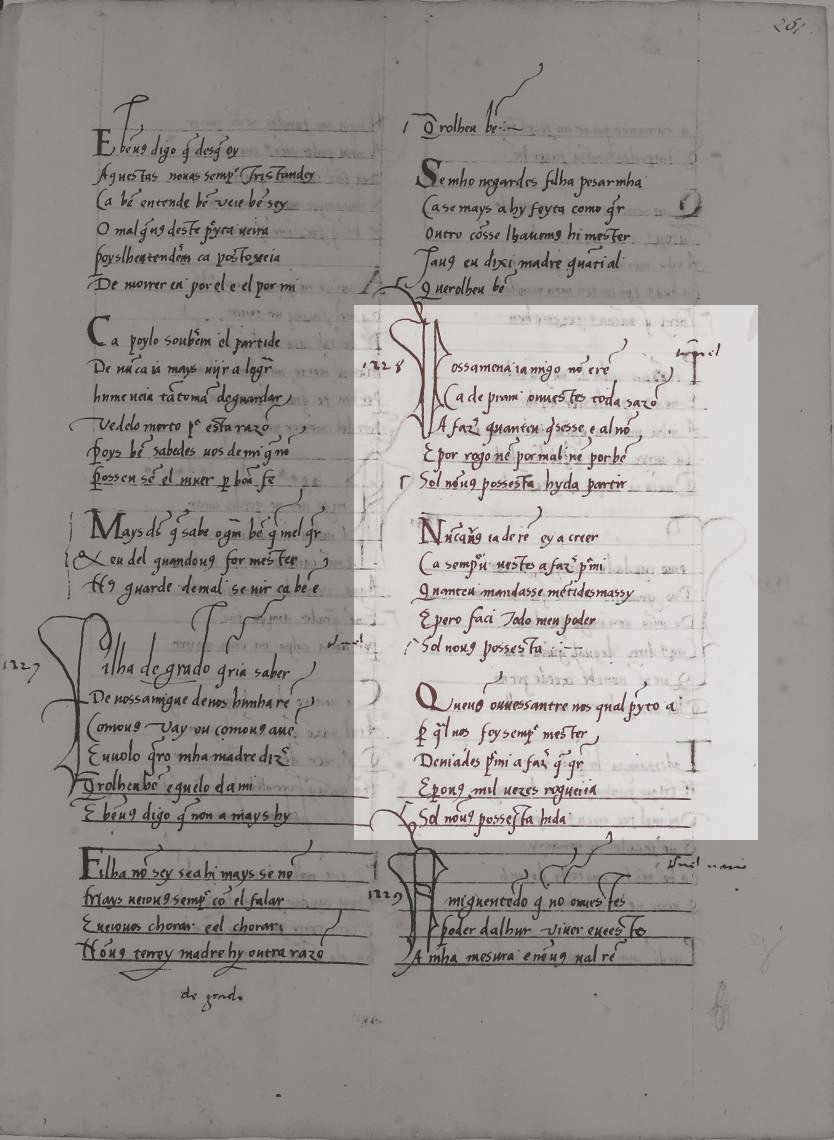 261
E beñg digo q̄ desq̄ oy
Aquestas nouas semp̄ Tristandey
Ca bē entende bē ueie bē sey
O mal q̄ng deste p̄yta ueira
poyslhentendem ca postoueia
De morrer en por el e el por mi
Ca poylo soubem el partide
De nūca ia mays uijr a logr̄
hume ueia tātoma deguardar
Vedelo morto p̄ esta razō
poys bē sabedes uos demi q̄ nō
possen sē el uiuer p̄ boā fe
Mays ds̄ q̄ sabe o gm̄ bē q̄ mel q̄r
& eu del quandoug for mester
Ng guarde demal se uir ca bē e
1227
Filha de grado q̄ria saber
De nossamigue denos hunha re
Comoug vay ou comoug auē
Euuolo q̄ro mha madre diz̄
Q̄rolheu bē equelo da mi
E beñg digo q̄ non a mays hy
Filha nō sey sea hi mays se nō
Mays ueioug semp̄ cō el falar
E ueiouos chorar e el chorar
Nōug terrey madre hy outra razō
de grado
Q̄rolheu bē
Se mho negardes filha pesarmha
Ca se mays a hy feyta como q̄r
Outro cōsse lhauemg hi mester
Jaug eu dixi madre quāti al
Querolheu bē
1228
Vossamenaiamigo nō ere
Ca de pram ouuestes toda sazō
A faz̄ quanteu q̄sesse e al nō
E por rogo nē por mal nē por bē
Sol nōug possesta hyda partir
Nūcaug ia de rē ey a creer
Ca semp̄u uestes a faz̄ p̄mi
Quanteu mandasse mētidesmassy
E pero faci Todo meu poder
Sol noug possesta
Queug ouuessantre nos qual p̄yto a
p̄ q̄l uos foy semp̄ mester
Deniades p̄mi a faz̄ q̄ q̄r
E poug mil uezes rogueiia
Sol nōug possesta hida
1229
Amiguentēdo q̄ nō ouuestes
poder dalhur viuer eueestes
A mha mesura enōug ual rē